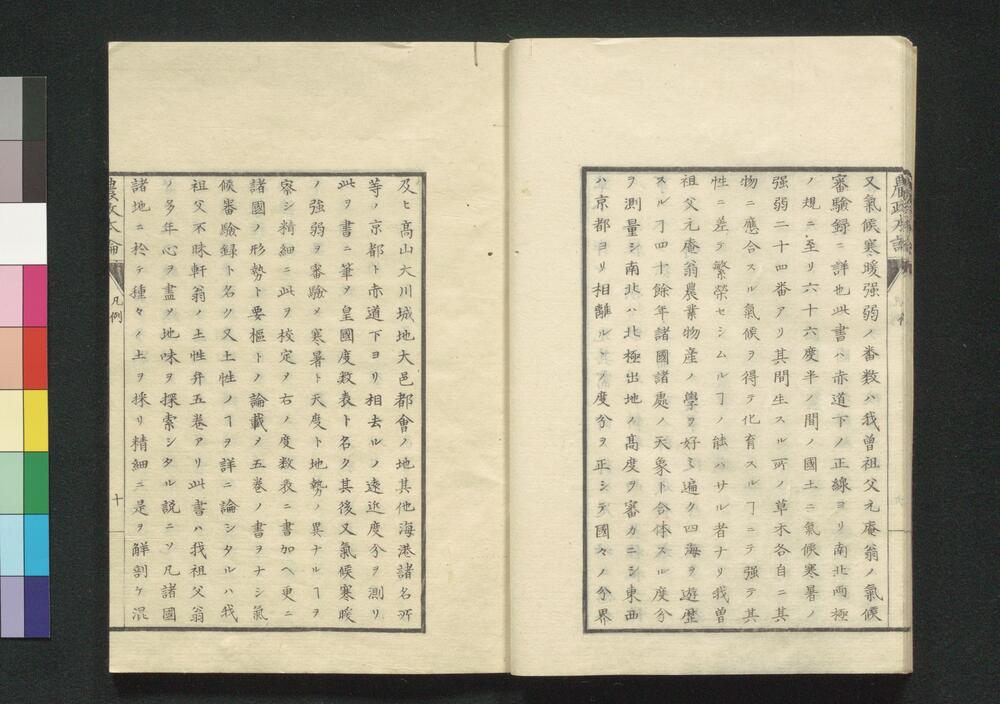 又氣候寒暖强弱ノ番数ハ我曽祖父元庵翁ノ氣候
審驗録ニ詳也此書ハ赤道下ノ正線ヨリ南北両極
ノ規ニ至リ六十六度半ノ間ノ國土ニ氣候寒暑ノ
强弱二十四番アリ其間生スル所ノ草木各自ニ其
物ニ應合スル氣候ヲ得テ化育スルヿニテ强テ其
性ニ差テ繁榮セシムルヿノ能ハサル者ナリ我曽
祖父元庵翁農業物産ノ學ヲ好ミ遍ク四海ヲ遊歴
スルヿ四十餘年諸國諸處ノ天象ト合体スル度分
ヲ測量シ南北ハ北極出地ノ髙度ヲ審カニシ東西
ハ京都ヨリ相離ルヽノ度分ヲ正シテ國々ノ分界
及ヒ髙山大川城地大邑都會ノ地其他海港諸名所
等ノ京都ト赤道下ヨリ相去ルノ遠近度分ヲ測リ
此ヲ書ニ筆ノ皇國度数表ト名ク其後又氣候寒暖
ノ强弱ヲ審驗メ寒暑ト天度ト地勢ノ異ナルヿヲ
察シ精細ニ此ヲ校定ヲ右ノ度数表ニ書加ヘ更ニ
諸國ノ形勢ト要樞トノ論載メ五巻ノ書ヲナシ氣
候審驗録ト名ク又土性ノヿヲ詳ニ論シタルハ我
祖父不昧軒翁ノ土性弁五巻アリ此書ハ我祖父翁
ノ多年心ヲ盡メ地味ヲ探索シタル説ニソ凡諸國
諸地ニ於テ種々ノ土ヲ採リ精細ニ是ヲ解割ケ混
農政本論
凡例
十